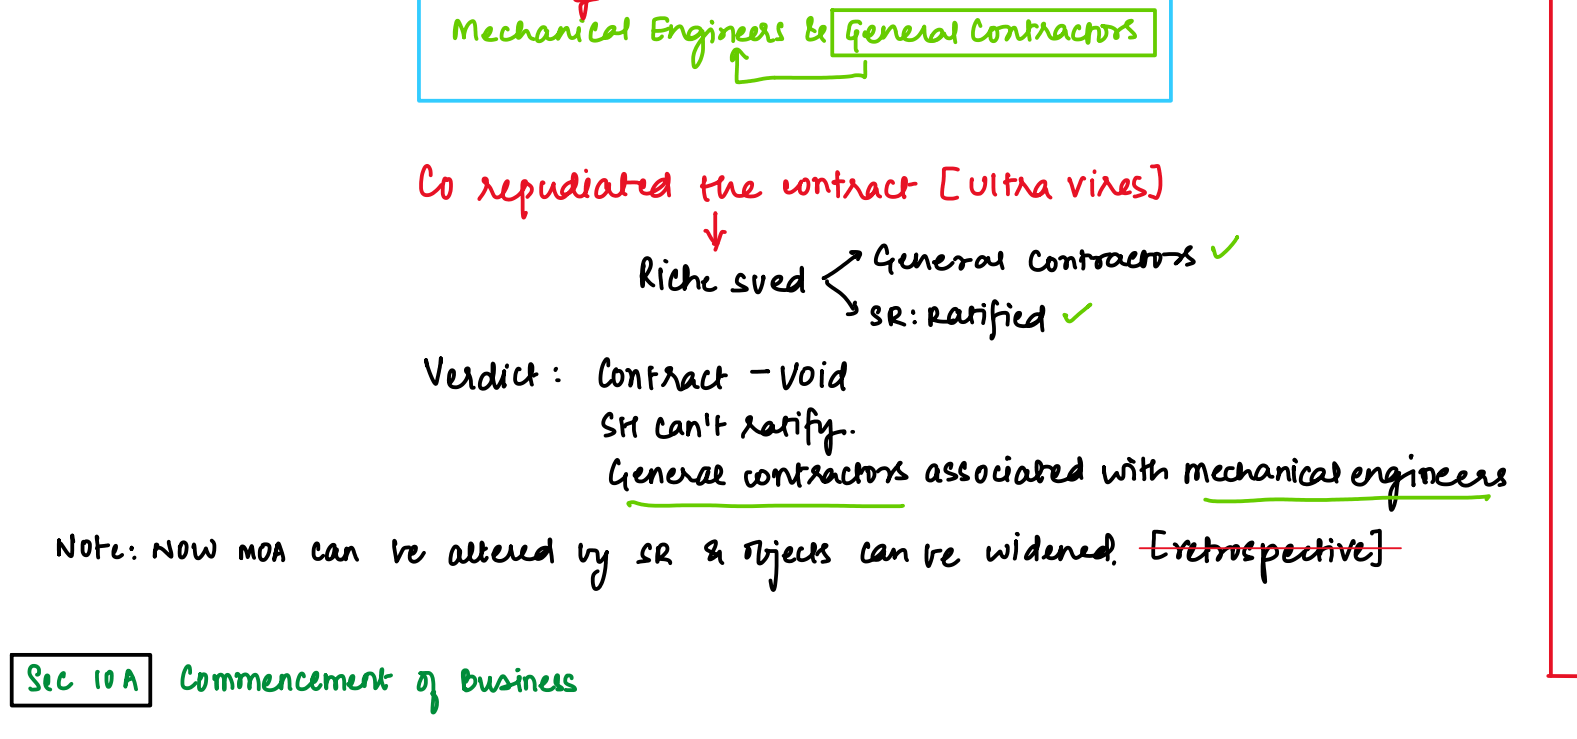 Mechanical Engineers & General Contractors
Co repudiated the contract [Ultra vires]
Riche sued
General Contractors ✓
SR: Ratified ✓
Verdict: Contract - void
SH can't ratify.
General contractors associated with mechanical engineers
Note: Now MOA can be altered by SR & objects can be widened. [retrospective]
Sec 10A Commencement of Business